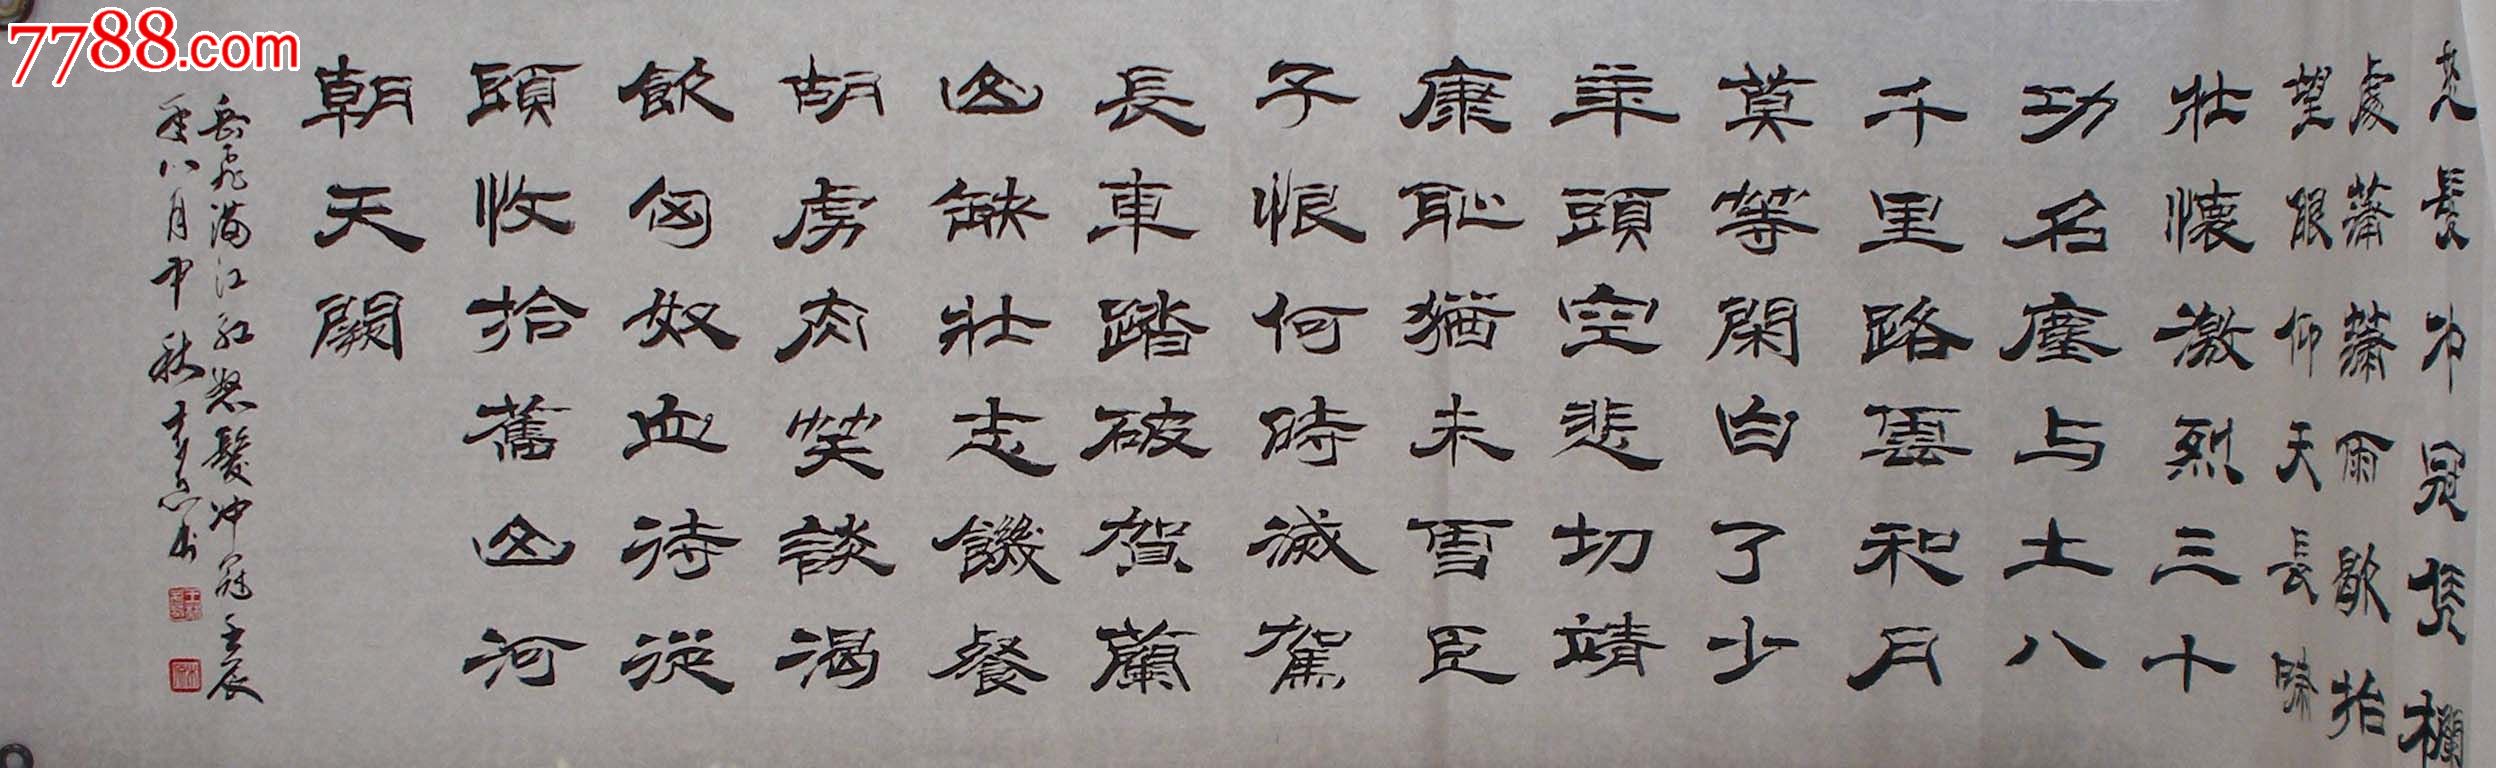 7788.com
怒髮冲冠凭欄
處蕭蕭雨歇抬
望眼仰天長嘯
壯懷激烈三十
功名塵与土八
千里路雲和月
莫等閑白了少
年頭空悲切靖
康恥猶未雪臣
子恨何時滅駕
長車踏破賀蘭
山缺壯志饑餐
胡虜肉笑談渴
飲匈奴血待從
頭收拾舊山河
朝天闕
岳飛滿江紅怒髮冲冠壬辰
年八月中秋